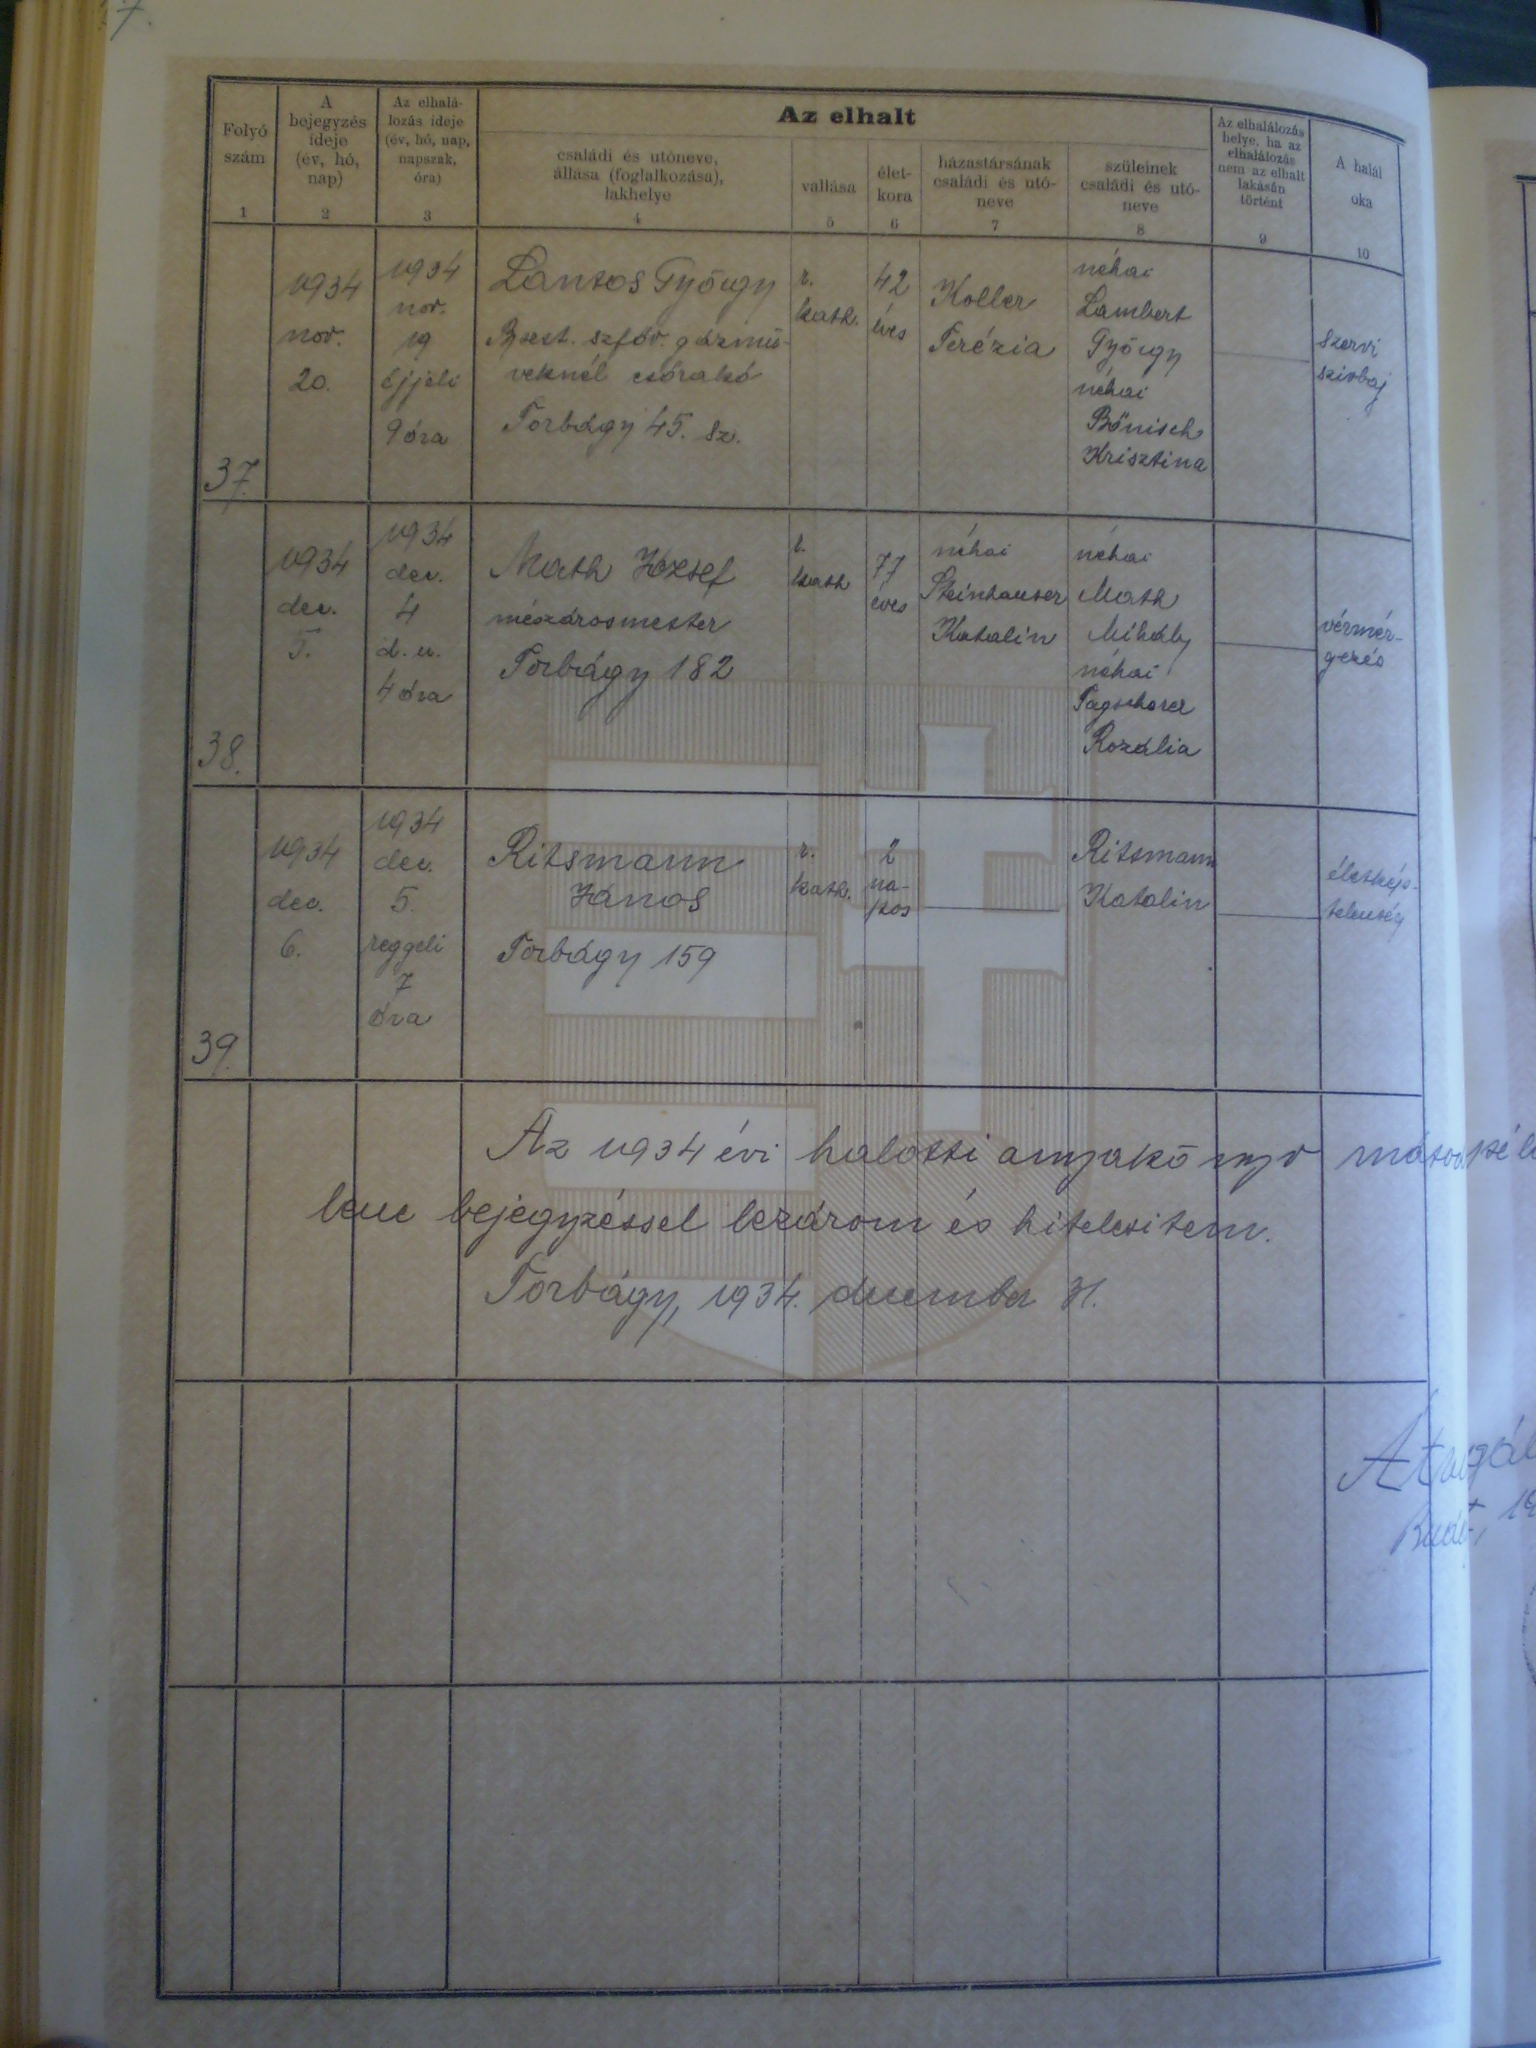 7.
Az elhalt
Folyó
szám
1
A
bejegyzés
ideje
(év, hó,
nap)
2
Az elhalá-
lozás ideje
(év, hó, nap,
napszak,
óra)
3
családi és utóneve,
állása (foglalkozása),
lakhelye
4
vallása
5
élet-
kora
6
házastársának
családi és utó-
neve
7
szüleinek
családi és utó-
neve
8
Az elhalálozás
helye, ha az
elhalálozás
nem az elhalt
lakásán
történt
9
A halál
oka
10
37.
1934
nov.
20.
1934
nov.
19
éjjeli
9 óra
Lantos György
szföv. gázmü-
veknél csőrakó
Torbágy 45. sz.
r.
kath.
42
éves
Koller
Terézia
néhai
Lambert
György
néhai
Bőnisch
Krisztina
szervi
szivbaj
38.
1934
dec.
5.
1934
dec.
4
d. u.
4 óra
Math József
mészárosmester
Torbágy 182
r.
kath
77
éves
néhai
Steinhauser
Katalin
néhai
Math
Mihály
néhai
Rozália
vérmér-
gezés
39.
1934
dec.
6.
1934
dec.
5.
reggeli
7
óra
Ritsmann
János
Torbágy 159
r.
kath.
2
na-
pos
Ritsmann
Katalin
életkép-
telenség
Az 1934 évi halotti anyakönyv
bejegyzéssel lezárom és hitelesitem.
Torbágy, 1934. december 31.